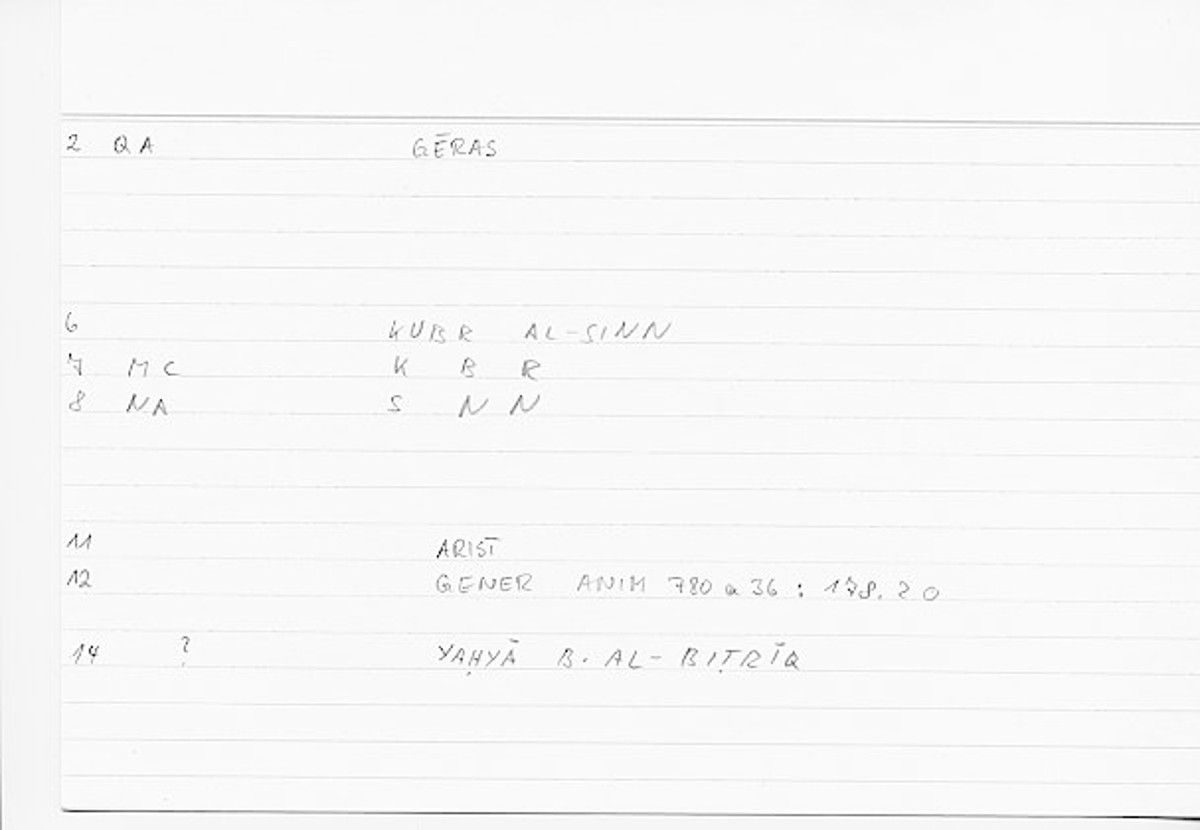 2 QA GĒRAS
6 KUBR AL-SINN
7 MC K B R
8 NA S N N
11 ARIST
12 GENER ANIM 780 a 36 : 178.20
14 ? YAḤYĀ B. AL-BIṬRĪQ